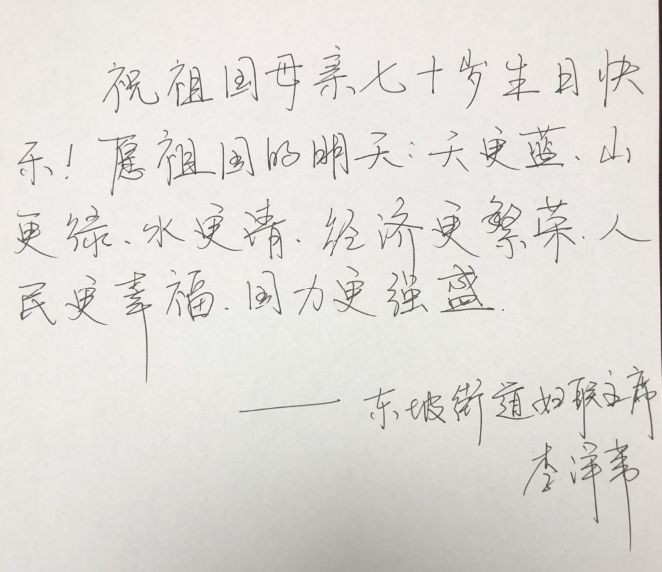 祝祖国母亲七十岁生日快
乐！愿祖国的明天：天更蓝、山
更绿、水更清、经济更繁荣、人
民更幸福、国力更强盛.
——东坡街道妇联主席
李洋